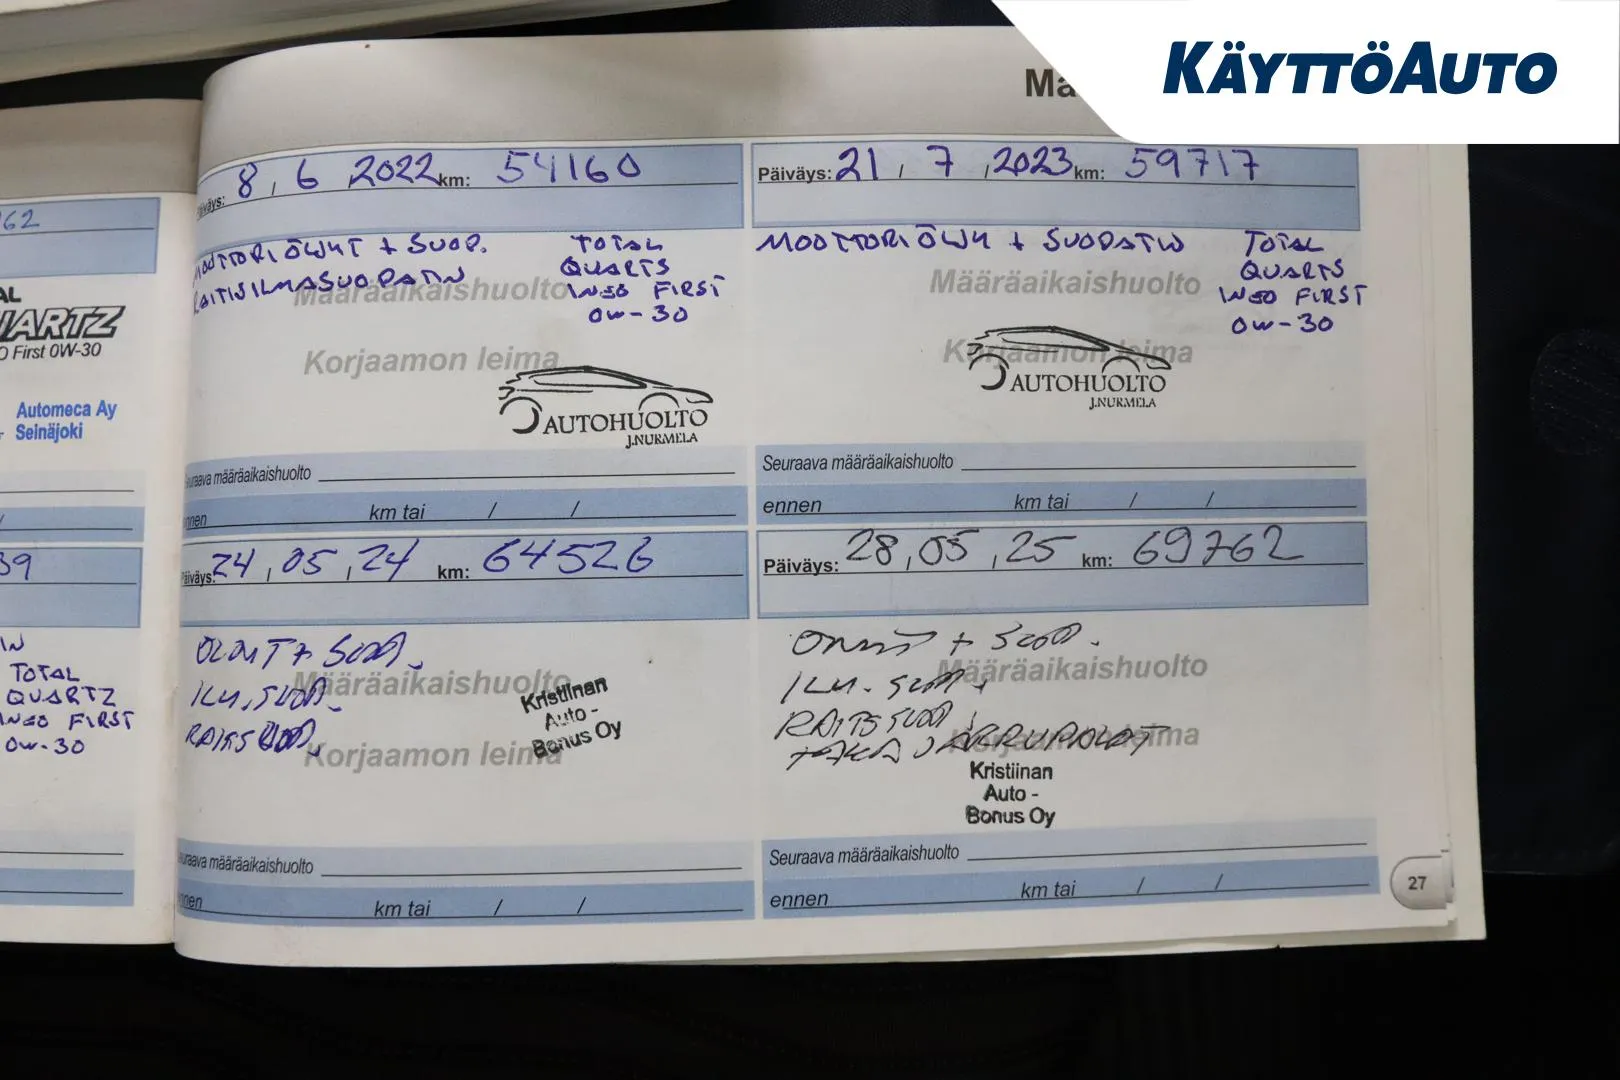 KÄYTTÖAUTO
Mä
62
AL
ARTZ
O First 0W-30
Automeca Ay
Seinäjoki
39
TOTAL
QUARTZ
INEO FIRST
0W-30
Päiväys: 8 / 6 2022 km: 54160
MOOTTORIÖLJYT + SUOD.
RAITISILMASUODATIN
TOTAL
QUARTS
INEO FIRST
0W-30
Määräaikaishuolto
Korjaamon leima
AUTOHUOLTO
J.NURMELA
Seuraava määräaikaishuolto
ennen km tai / /
Päiväys: 21 / 7 / 2023 km: 59717
MOOTTORIÖLJY + SUODATIN
TOTAL
QUARTS
INEO FIRST
0W-30
Määräaikaishuolto
Korjaamon leima
AUTOHUOLTO
J.NURMELA
Seuraava määräaikaishuolto
ennen km tai / /
Päiväys: 24 / 05 / 24 km: 64526
ÖLJYT + SUOD.
ILM.SUOD.
RAITISSUOD.
Määräaikaishuolto
Korjaamon leima
Kristiinan
Auto -
Bonus Oy
Seuraava määräaikaishuolto
ennen km tai / /
Päiväys: 28 / 05 / 25 km: 69762
+ SUOD.
ILM. SUOD.
RAITISSUOD.
TAKA JARRUPALAT
Määräaikaishuolto
Korjaamon leima
Kristiinan
Auto -
Bonus Oy
Seuraava määräaikaishuolto
ennen km tai / /
27